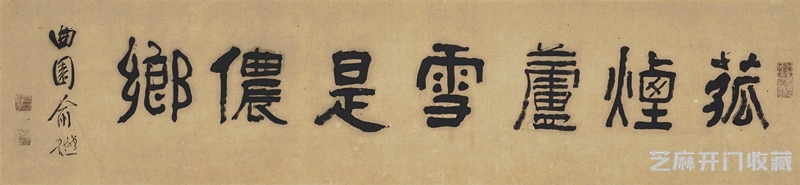 菰煙蘆雪是儂鄉
曲園俞樾
芝麻开门收藏